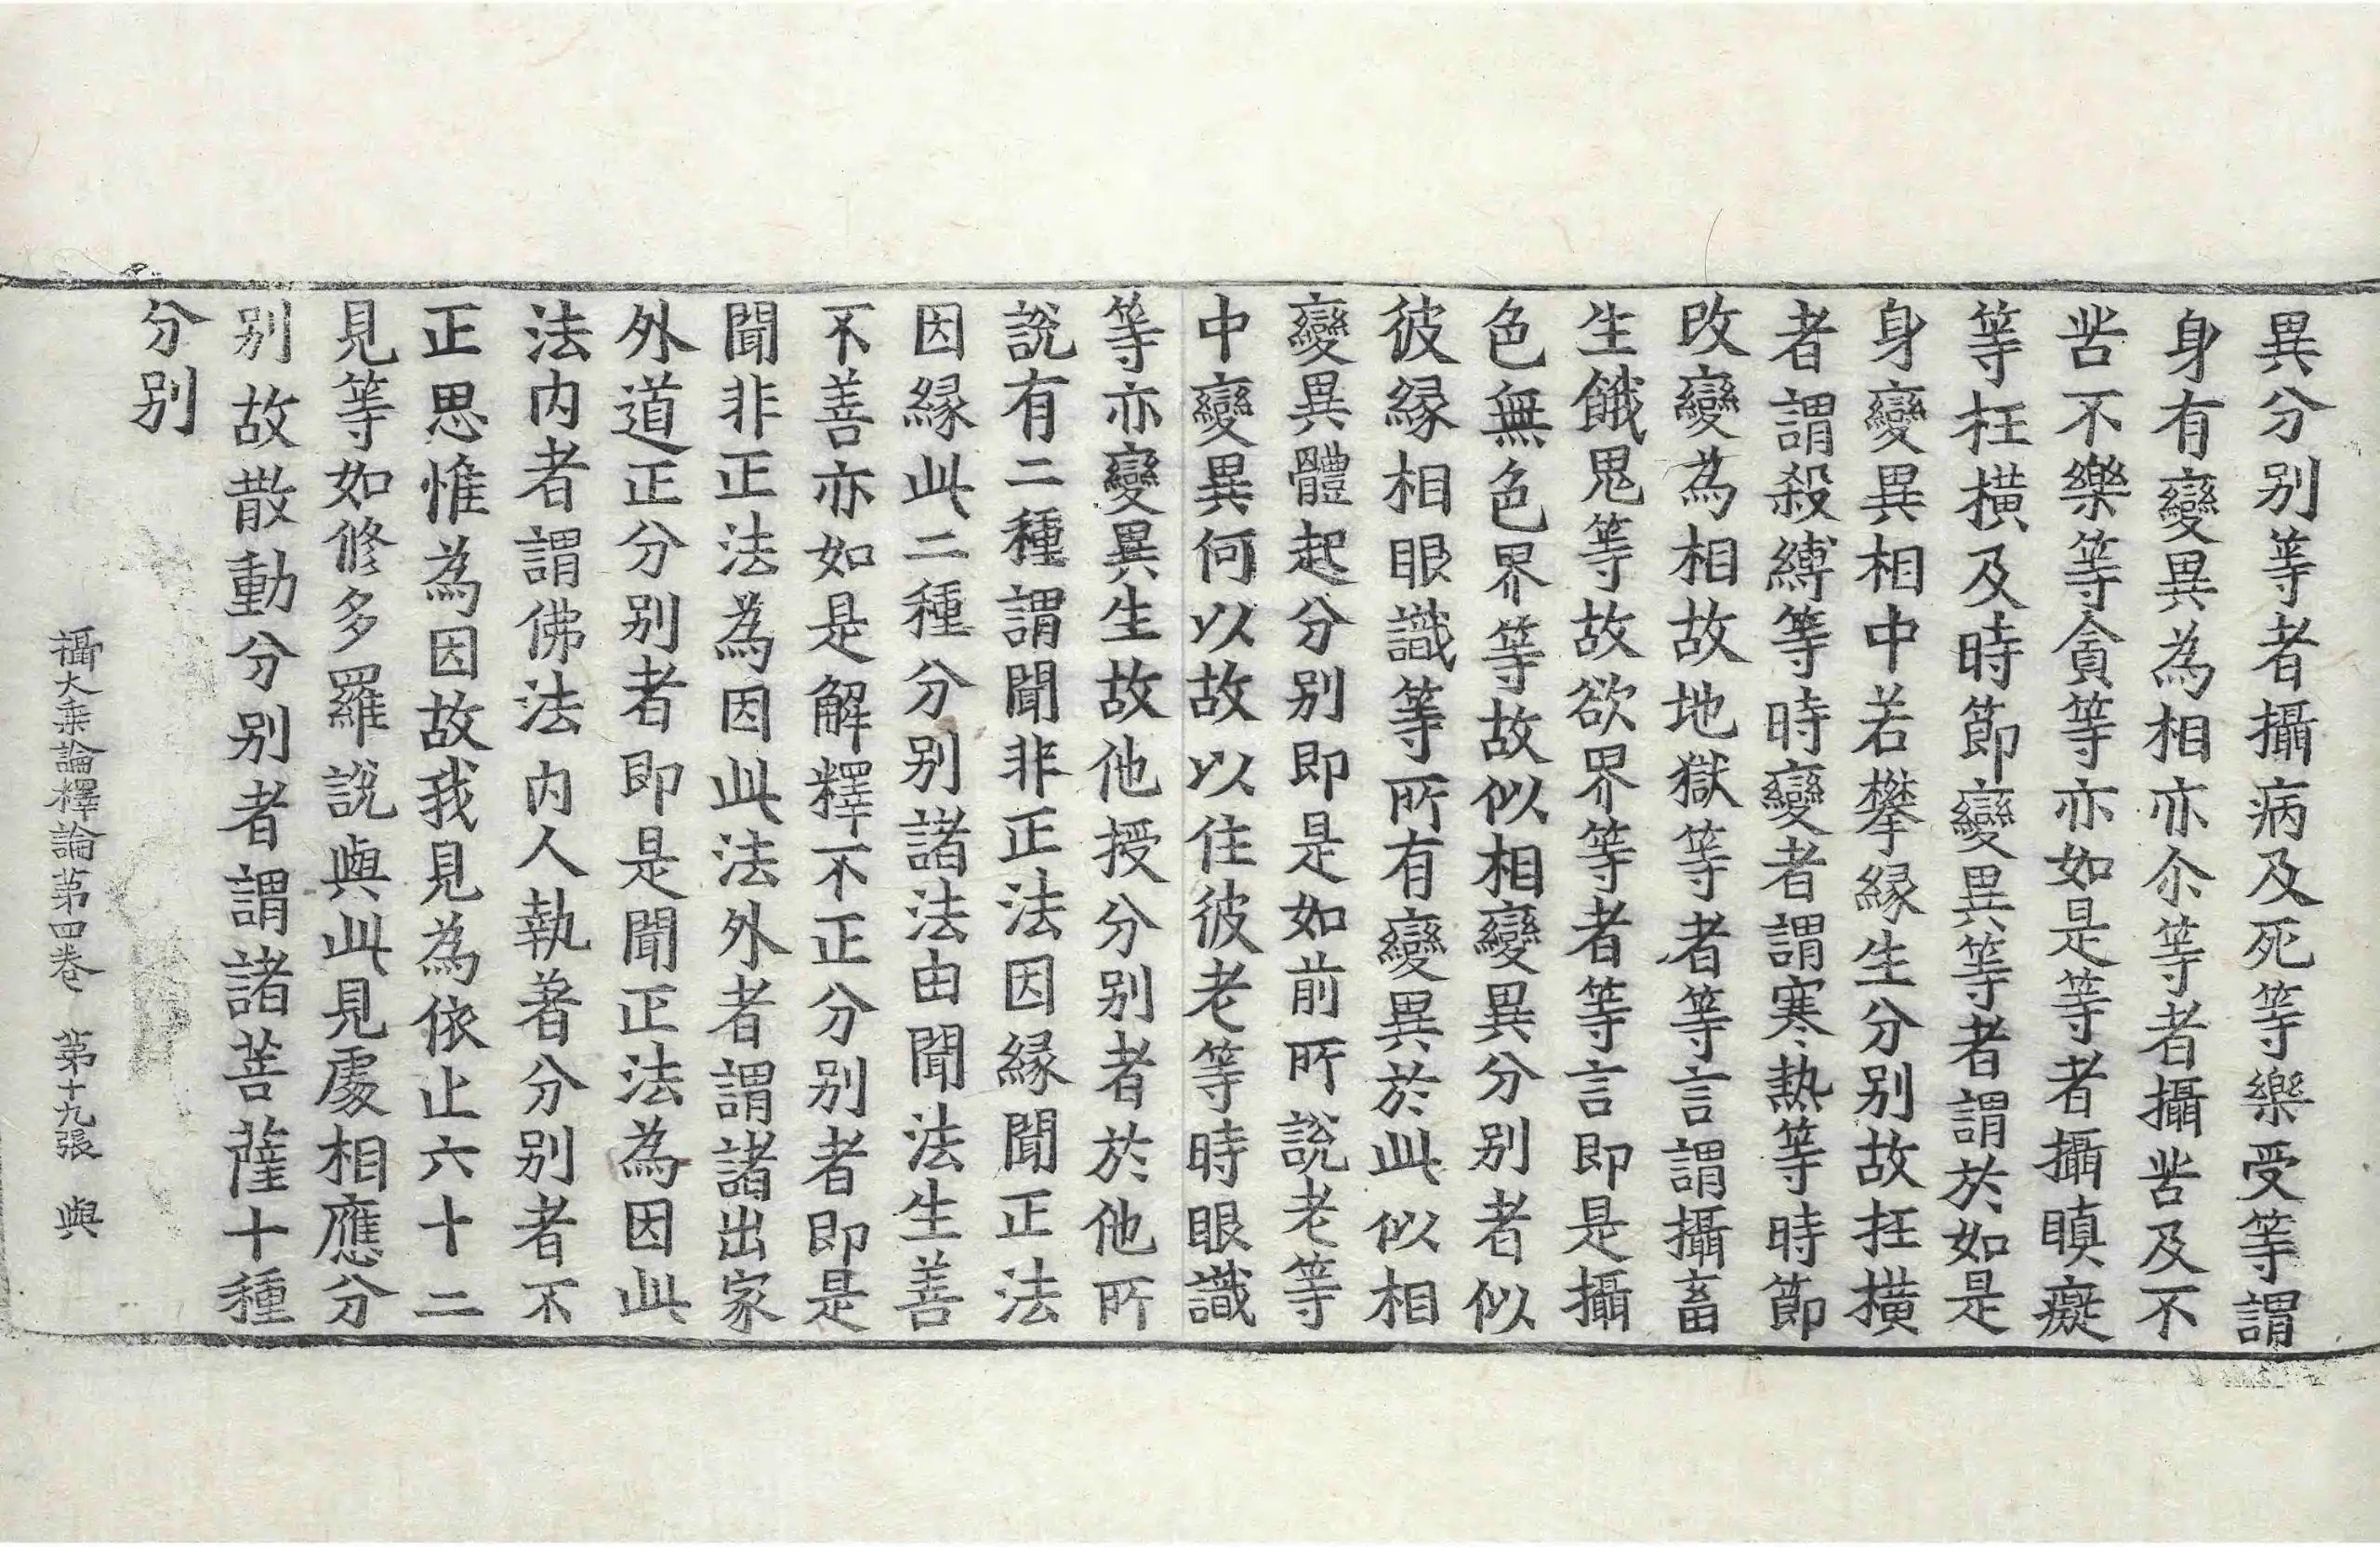 異分别等者攝病及死等樂受等謂
身有變異為相亦尒等者攝苦及不
苦不樂等貪等亦如是等者攝瞋癡
等枉橫及時節變異等者謂於如是
身變異相中若攀緣生分别故抂橫
者謂殺縛等時變者謂寒熱等時節
改變為相故地獄等者等言謂攝畜
生餓鬼等故欲界等者等言即是攝
色無色界等故似相變異分别者似
彼緣相眼識等所有變異於此似相
變異體起分别即是如前所說老等
中變異何以故以住彼老等時眼識
等亦變異生故他授分别者於他所
說有二種謂聞非正法因緣聞正法
因緣此二種分别諸法由聞法生善
不善亦如是解釋不正分别者即是
聞非正法為因此法外者謂諸出家
外道正分别者即是聞正法為因此
法内者謂佛法内人執著分别者不
正思惟為因故我見為依止六十二
見等如修多羅說與此見處相應分
别故散動分别者謂諸菩薩十種
分别
攝大乘論釋論第四卷 第十九張 與